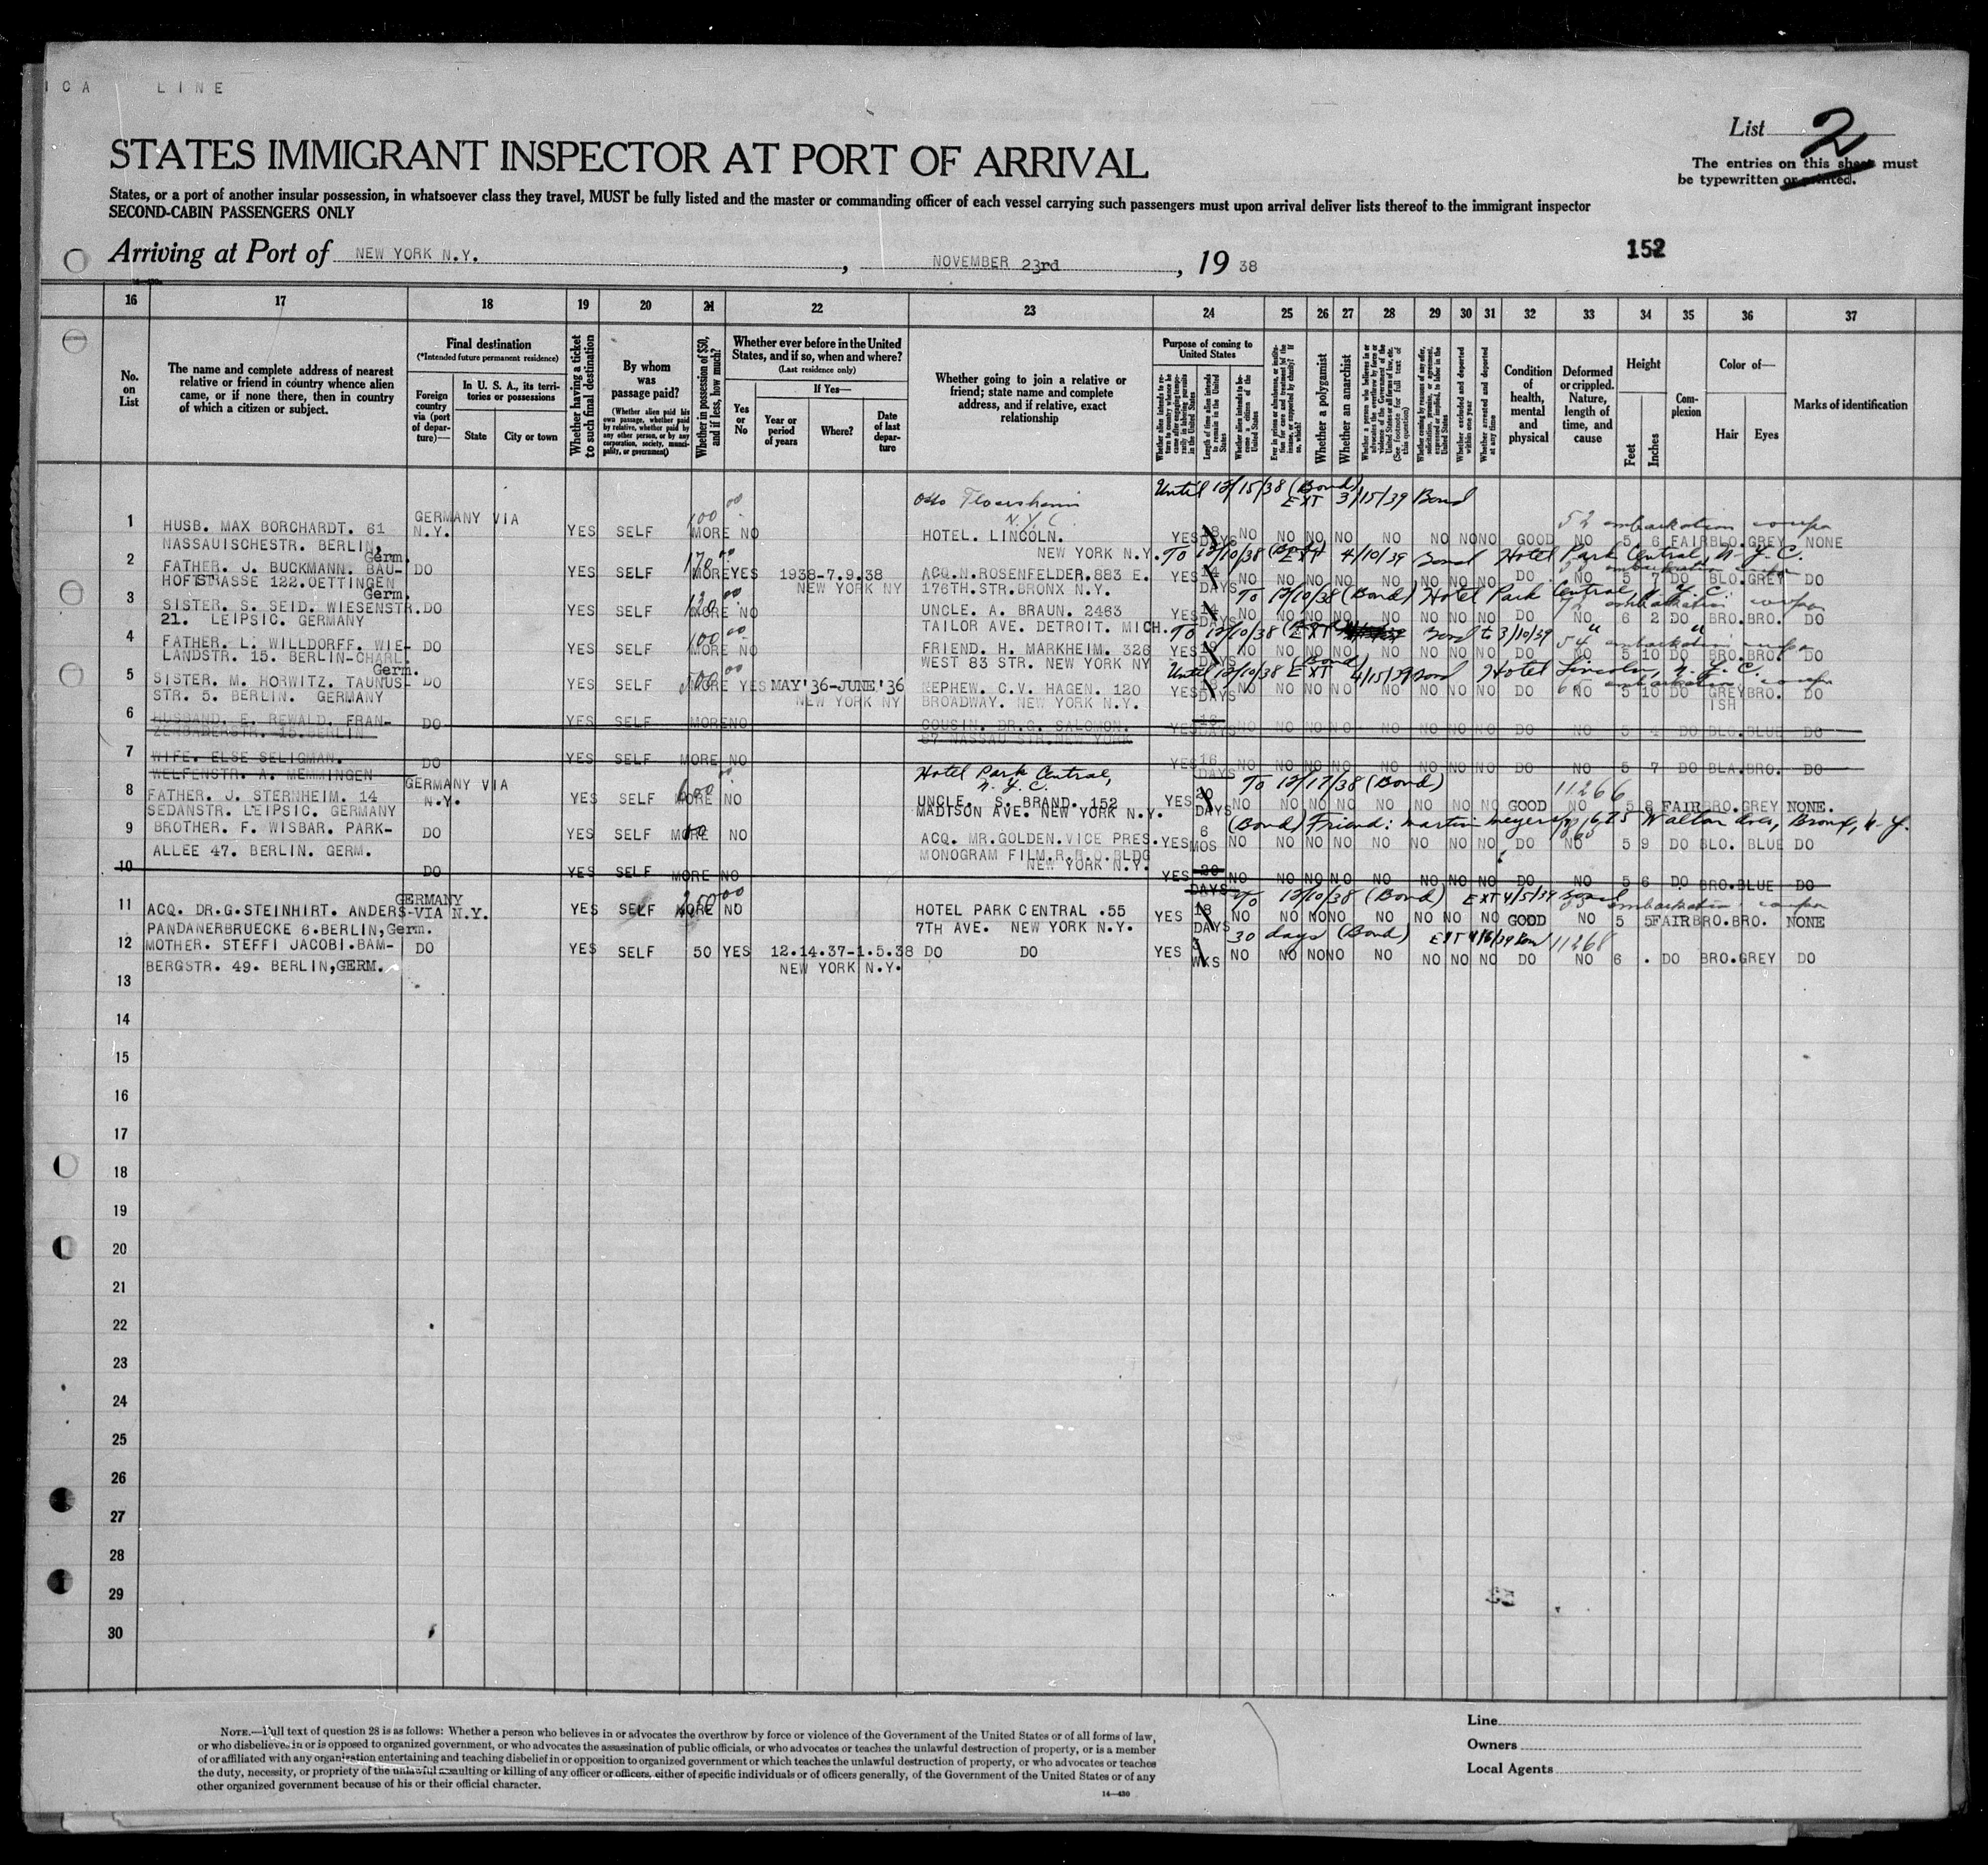 ICA LINE
List 2
STATES IMMIGRANT INSPECTOR AT PORT OF ARRIVAL
The entries on this sheet must
be typewritten or printed.
States, or a port of another insular possession, in whatsoever class they travel, MUST be fully listed and the master or commanding officer of each vessel carrying such passengers must upon arrival deliver lists thereof to the immigrant inspector
SECOND-CABIN PASSENGERS ONLY
Arriving at Port of NEW YORK N.Y. , NOVEMBER 23rd , 19 38
152
16 17 18 19 20 21 22 23 24 25 26 27 28 29 30 31 32 33 34 35 36 37
No. on List
The name and complete address of nearest
relative or friend in country whence alien
came, or if none there, then in country
of which a citizen or subject.
Final destination
(*Intended future permanent residence)
Foreign country via (port of departure)—
In U. S. A., its territories or possessions
State
City or town
Whether having a ticket to such final destination
By whom was passage paid?
(Whether alien paid his own passage, whether paid by relative, whether paid by any other person, or by any corporation, society, municipality, or government)
Whether in possession of $50, and if less, how much?
Whether ever before in the United States, and if so, when and where?
(Last residence only)
Yes or No
If Yes—
Year or period of years
Where?
Date of last departure
Whether going to join a relative or friend; state name and complete address, and if relative, exact relationship
Purpose of coming to United States
Whether a polygamist
Whether an anarchist
Condition of health, mental and physical
Deformed or crippled. Nature, length of time, and cause
Height
Feet
Inches
Complexion
Color of—
Hair
Eyes
Marks of identification
Until 12/15/38 (Bond)
EXT 3/15/39 Bond
N.Y.C.
1 HUSB. MAX BORCHARDT. 61 GERMANY VIA N.Y. YES SELF 100 00 MORE NO HOTEL. LINCOLN. YES DAYS NO NO NO NO NO NO NO NO GOOD NO 5 6 FAIR BLO. GREY NONE
NASSAUISCHESTR. BERLIN, Germ. NEW YORK N.Y.
To 12/10/38 EXT 4/10/39 Bond Hotel Park Central, N.Y.C.
2 FATHER. J. BUCKMANN. BAU- DO YES SELF MORE YES 1938-7.9.38 ACQ.N.ROSENFELDER.883 E. YES 14 NO NO NO NO NO NO NO NO DO NO 5 7 DO BLO. GREY DO
HOFSTRASSE 122.OETTINGEN Germ. NEW YORK NY 176TH.STR.BRONX N.Y. DAYS
To 12/10/38 (Bond) Hotel Park Central, N.Y.C.
3 SISTER. S. SEID. WIESENSTR. DO YES SELF MORE NO UNCLE. A. BRAUN. 2463 YES 14 NO NO NO NO NO NO NO NO DO NO 6 2 DO BRO. BRO. DO
21. LEIPSIC. GERMANY TAILOR AVE. DETROIT. MICH. DAYS
To 12/10/38 EXT Bond to 3/10/39
4 FATHER. L. WILLDORFF. WIE- DO YES SELF 100 00 MORE NO FRIEND. H. MARKHEIM. 326 YES NO NO NO NO NO NO NO NO DO NO 5 10 DO BRO. BRO. DO
LANDSTR. 15. BERLIN-CHARL. Germ. WEST 83 STR. NEW YORK NY DAYS
Until 12/10/38 (Bond) EXT 4/15/39 Bond Hotel Lincoln, N.Y.C.
5 SISTER. M. HORWITZ. TAUNUS- DO YES SELF MORE YES MAY'36-JUNE'36 NEPHEW. C.V. HAGEN. 120 YES NO NO NO NO NO NO NO NO DO NO 5 10 DO GREYISH BRO. DO
STR. 5. BERLIN. GERMANY NEW YORK NY BROADWAY. NEW YORK N.Y. DAYS
6 HUSBAND. E. REWALD. FRAN- DO YES SELF MORE NO COUSIN. DR.G. SALOMON. YES DAYS NO NO NO NO NO NO NO NO DO NO 5 4 DO BLO. BLUE DO
ZENBADERSTR. 15.BERLIN 67 NASSAU STR.NEW YORK
7 WIFE. ELSE SELIGMAN. DO YES SELF MORE NO YES 16 NO NO NO NO NO NO NO NO DO NO 5 7 DO BLA. BRO. DO
WELFENSTR. A. MEMMINGEN DAYS
Hotel Park Central, N.Y.C. To 12/17/38 (Bond) 11266
8 FATHER. J. STERNHEIM. 14 GERMANY VIA N.Y. YES SELF 600 00 MORE NO UNCLE. S. BRAND. 152 YES 20 NO NO NO NO NO NO NO NO GOOD NO 5 8 FAIR BRO. GREY NONE.
SEDANSTR. LEIPSIC. GERMANY MADISON AVE. NEW YORK N.Y. DAYS
(Bond) Friend: Martin Meyers, Walton Ave, Bronx, N.Y.
9 BROTHER. F. WISBAR. PARK- DO YES SELF MORE NO ACQ. MR.GOLDEN.VICE PRES. YES 6 MOS NO NO NO NO NO NO NO NO DO NO 5 9 DO BLO. BLUE DO
ALLEE 47. BERLIN. GERM. MONOGRAM FILM.R.R.O.BLDG
NEW YORK N.Y.
10 DO YES SELF MORE NO YES 20 DAYS NO NO NO NO NO NO NO NO DO NO 5 6 DO BRO. BLUE DO
To 12/10/38 (Bond) EXT 4/5/39 Bond
11 ACQ. DR.G.STEINHIRT. ANDERS- GERMANY VIA N.Y. YES SELF MORE NO HOTEL PARK CENTRAL .55 YES 18 NO NO NO NO NO NO NO NO GOOD NO 5 5 FAIR BRO. BRO. NONE
PANDANERBRUECKE 6.BERLIN,Germ. 7TH AVE. NEW YORK N.Y. DAYS
30 days (Bond) EXT 4/6/39 11268
12 MOTHER. STEFFI JACOBI.BAM- DO YES SELF 50 YES 12.14.37-1.5.38 DO DO YES WKS NO NO NO NO NO NO NO NO DO NO 6 . DO BRO. GREY DO
BERGSTR. 49. BERLIN,GERM. NEW YORK N.Y.
13
14
15
16
17
18
19
20
21
22
23
24
25
26
27
28
29
30
NOTE.—Full text of question 28 is as follows: Whether a person who believes in or advocates the overthrow by force or violence of the Government of the United States or of all forms of law,
or who disbelieves in or is opposed to organized government, or who advocates the assassination of public officials, or who advocates or teaches the unlawful destruction of property, or is a member
of or affiliated with any organization entertaining and teaching disbelief in or opposition to organized government or which teaches the unlawful destruction of property, or who advocates or teaches
the duty, necessity, or propriety of the unlawful assaulting or killing of any officer or officers, either of specific individuals or of officers generally, of the Government of the United States or of any
other organized government because of his or their official character.
14—430
Line
Owners
Local Agents